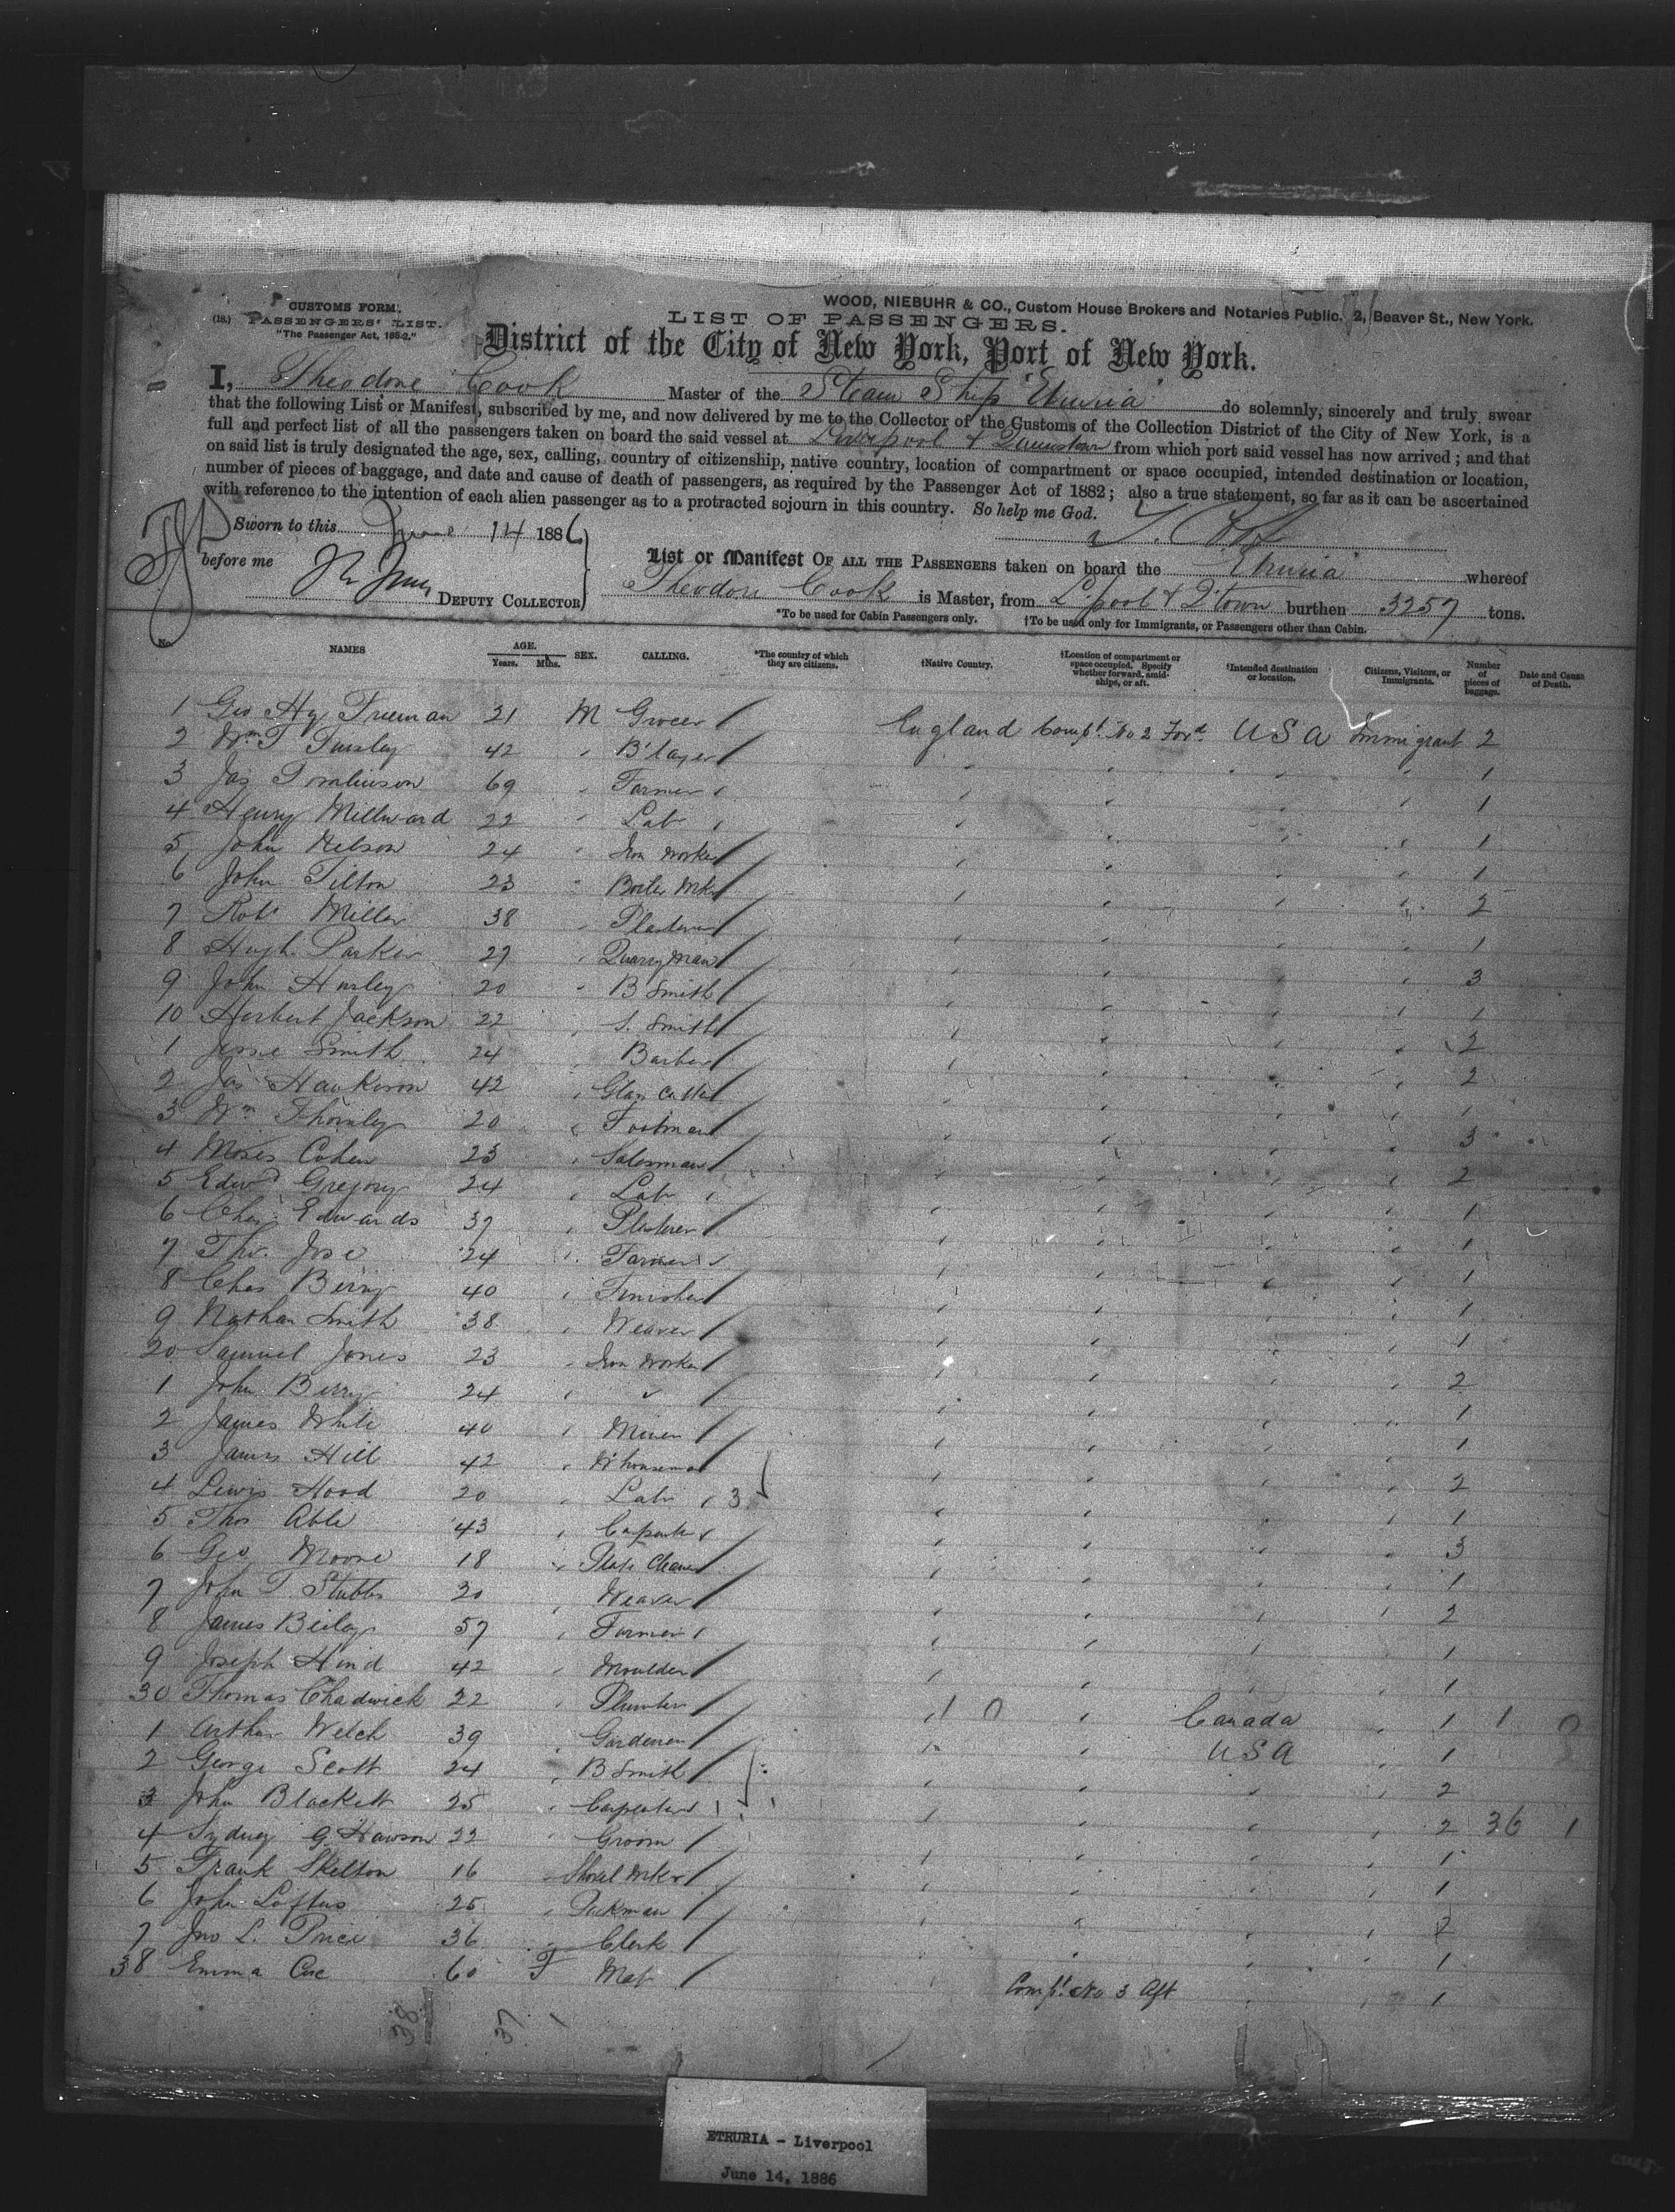 WOOD, NIEBUHR & CO., Custom House Brokers and Notaries Public. 2, Beaver St., New York.
CUSTOMS FORM.
(18.) PASSENGERS' LIST.
"The Passenger Act, 1882."
LIST OF PASSENGERS.
District of the City of New York, Port of New York.
I, Theodore Cook Master of the Steam Ship "Etruria" do solemnly, sincerely and truly swear
that the following List or Manifest, subscribed by me, and now delivered by me to the Collector of the Customs of the Collection District of the City of New York, is a
full and perfect list of all the passengers taken on board the said vessel at Liverpool & Queenstown from which port said vessel has now arrived; and that
on said list is truly designated the age, sex, calling, country of citizenship, native country, location of compartment or space occupied, intended destination or location,
number of pieces of baggage, and date and cause of death of passengers, as required by the Passenger Act of 1882; also a true statement, so far as it can be ascertained
with reference to the intention of each alien passenger as to a protracted sojourn in this country. So help me God.
Sworn to this June 14 1886
T. Cook
before me
DEPUTY COLLECTOR
List or Manifest OF ALL THE PASSENGERS taken on board the Etruria whereof
Theodore Cook is Master, from L'pool & Q'town burthen 3257 tons.
*To be used for Cabin Passengers only. †To be used only for Immigrants, or Passengers other than Cabin.
No. NAMES AGE. Years. Mths. SEX. CALLING. *The country of which they are citizens. †Native Country. †Location of compartment or space occupied. Specify whether forward, amidships, or aft. †Intended destination or location. Citizens, Visitors, or Immigrants. Number of pieces of baggage. Date and Cause of Death.
1 Geo Hy Freeman 21 M Grocer England Compt. No 2 Ford. USA Immigrant 2
2 Wm T 42 B'layer 1
3 Jas Tomlinson 69 Farmer 1
4 Henry Millward 22 Labr 1
5 John Nelson 24 Iron Worker 1
6 John Tilton 23 Boiler Mkr 2
7 Robt Miller 38 Plasterer 1
8 Hugh Parker 27 Quarryman 3
9 John Hurley 20 B Smith 1
10 Herbert Jackson 22 S. Smith 2
1 Jesse Smith 24 Barber 2
2 Jas 42 Glass Cutter 1
3 Wm Thornley 20 Footman 3
4 Moses Cohen 23 Salesman 2
5 Edwd Gregory 24 Labr 1
6 Chas Edwards 37 Plasterer 1
7 Tho. Jose 24 Farmer 1
8 Chas Berry 40 Finisher 1
9 Nathan Smith 38 Weaver 1
20 Samuel Jones 23 Iron Worker 2
1 John Berry 24 " 1
2 James White 40 Miner 1
3 James Hill 42 W'houseman 2
4 Lewis Hood 20 Labr 3 1
5 Thos Able 43 Carpenter 3
6 Geo Moore 18 Plate Cleaner 1
7 John T. Stubbs 30 Weaver 2
8 James Beiley 57 Farmer 1
9 Joseph Hind 42 Moulder 1
30 Thomas Chadwick 22 Plumber 1 0 Canada 1 1 0
1 Arthur Welch 39 Gardener USA 1
2 George Scott 24 B Smith 2
3 John Blackett 25 Carpenter 2 36 1
4 Sydney G. Hawson 22 Groom 1
5 Frank Skelton 16 Shovel Mkr 1
6 John Loftus 25 2
7 Jno L. Price 36 Clerk 1
38 Emma 60 F Mat Compt. No 3 Aft 1
38 37 1
ETRURIA - Liverpool
June 14, 1886